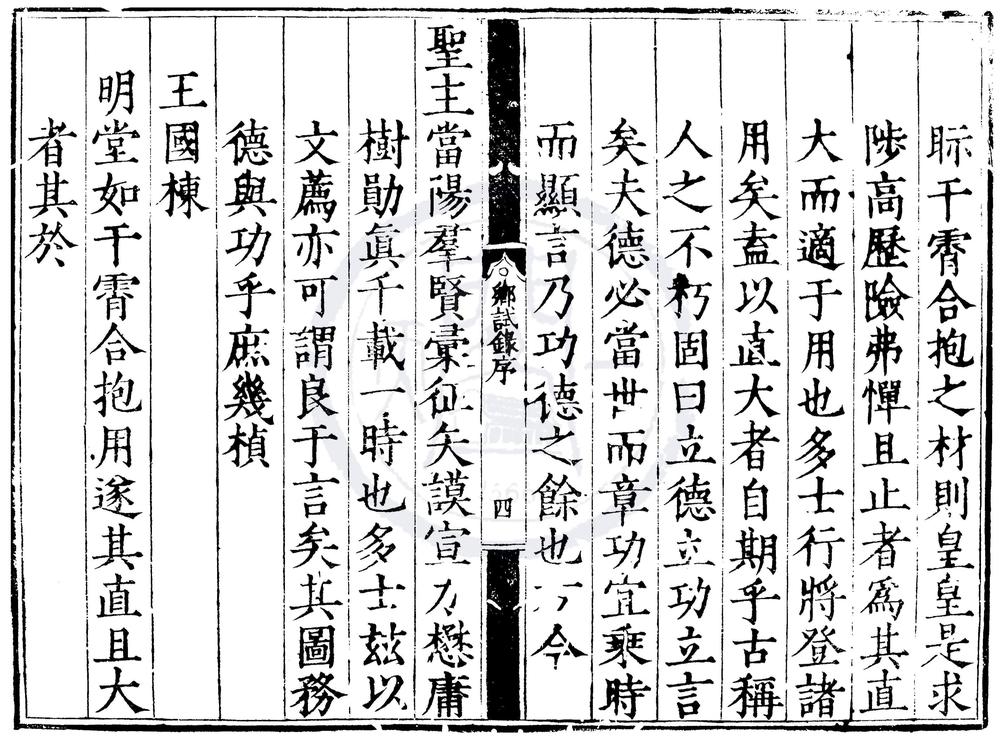 眎干霄合抱之材則皇皇是求
陟高歷險弗憚且止者爲其直
大而適于用也多士行將登諸
用矣盍以直大者自期乎古稱
人之不朽固曰立德立功立言
矣夫德必當世而章功宜乘時
而顯言乃功德之餘也方今
鄉試錄序
四
聖主當陽羣賢彙征矢謨宣力懋庸
樹勛眞千載一時也多士玆以
文薦亦可謂良于言矣其圖務
德與功乎庶幾楨
王國棟
明堂如干霄合抱用遂其直且大
者其於